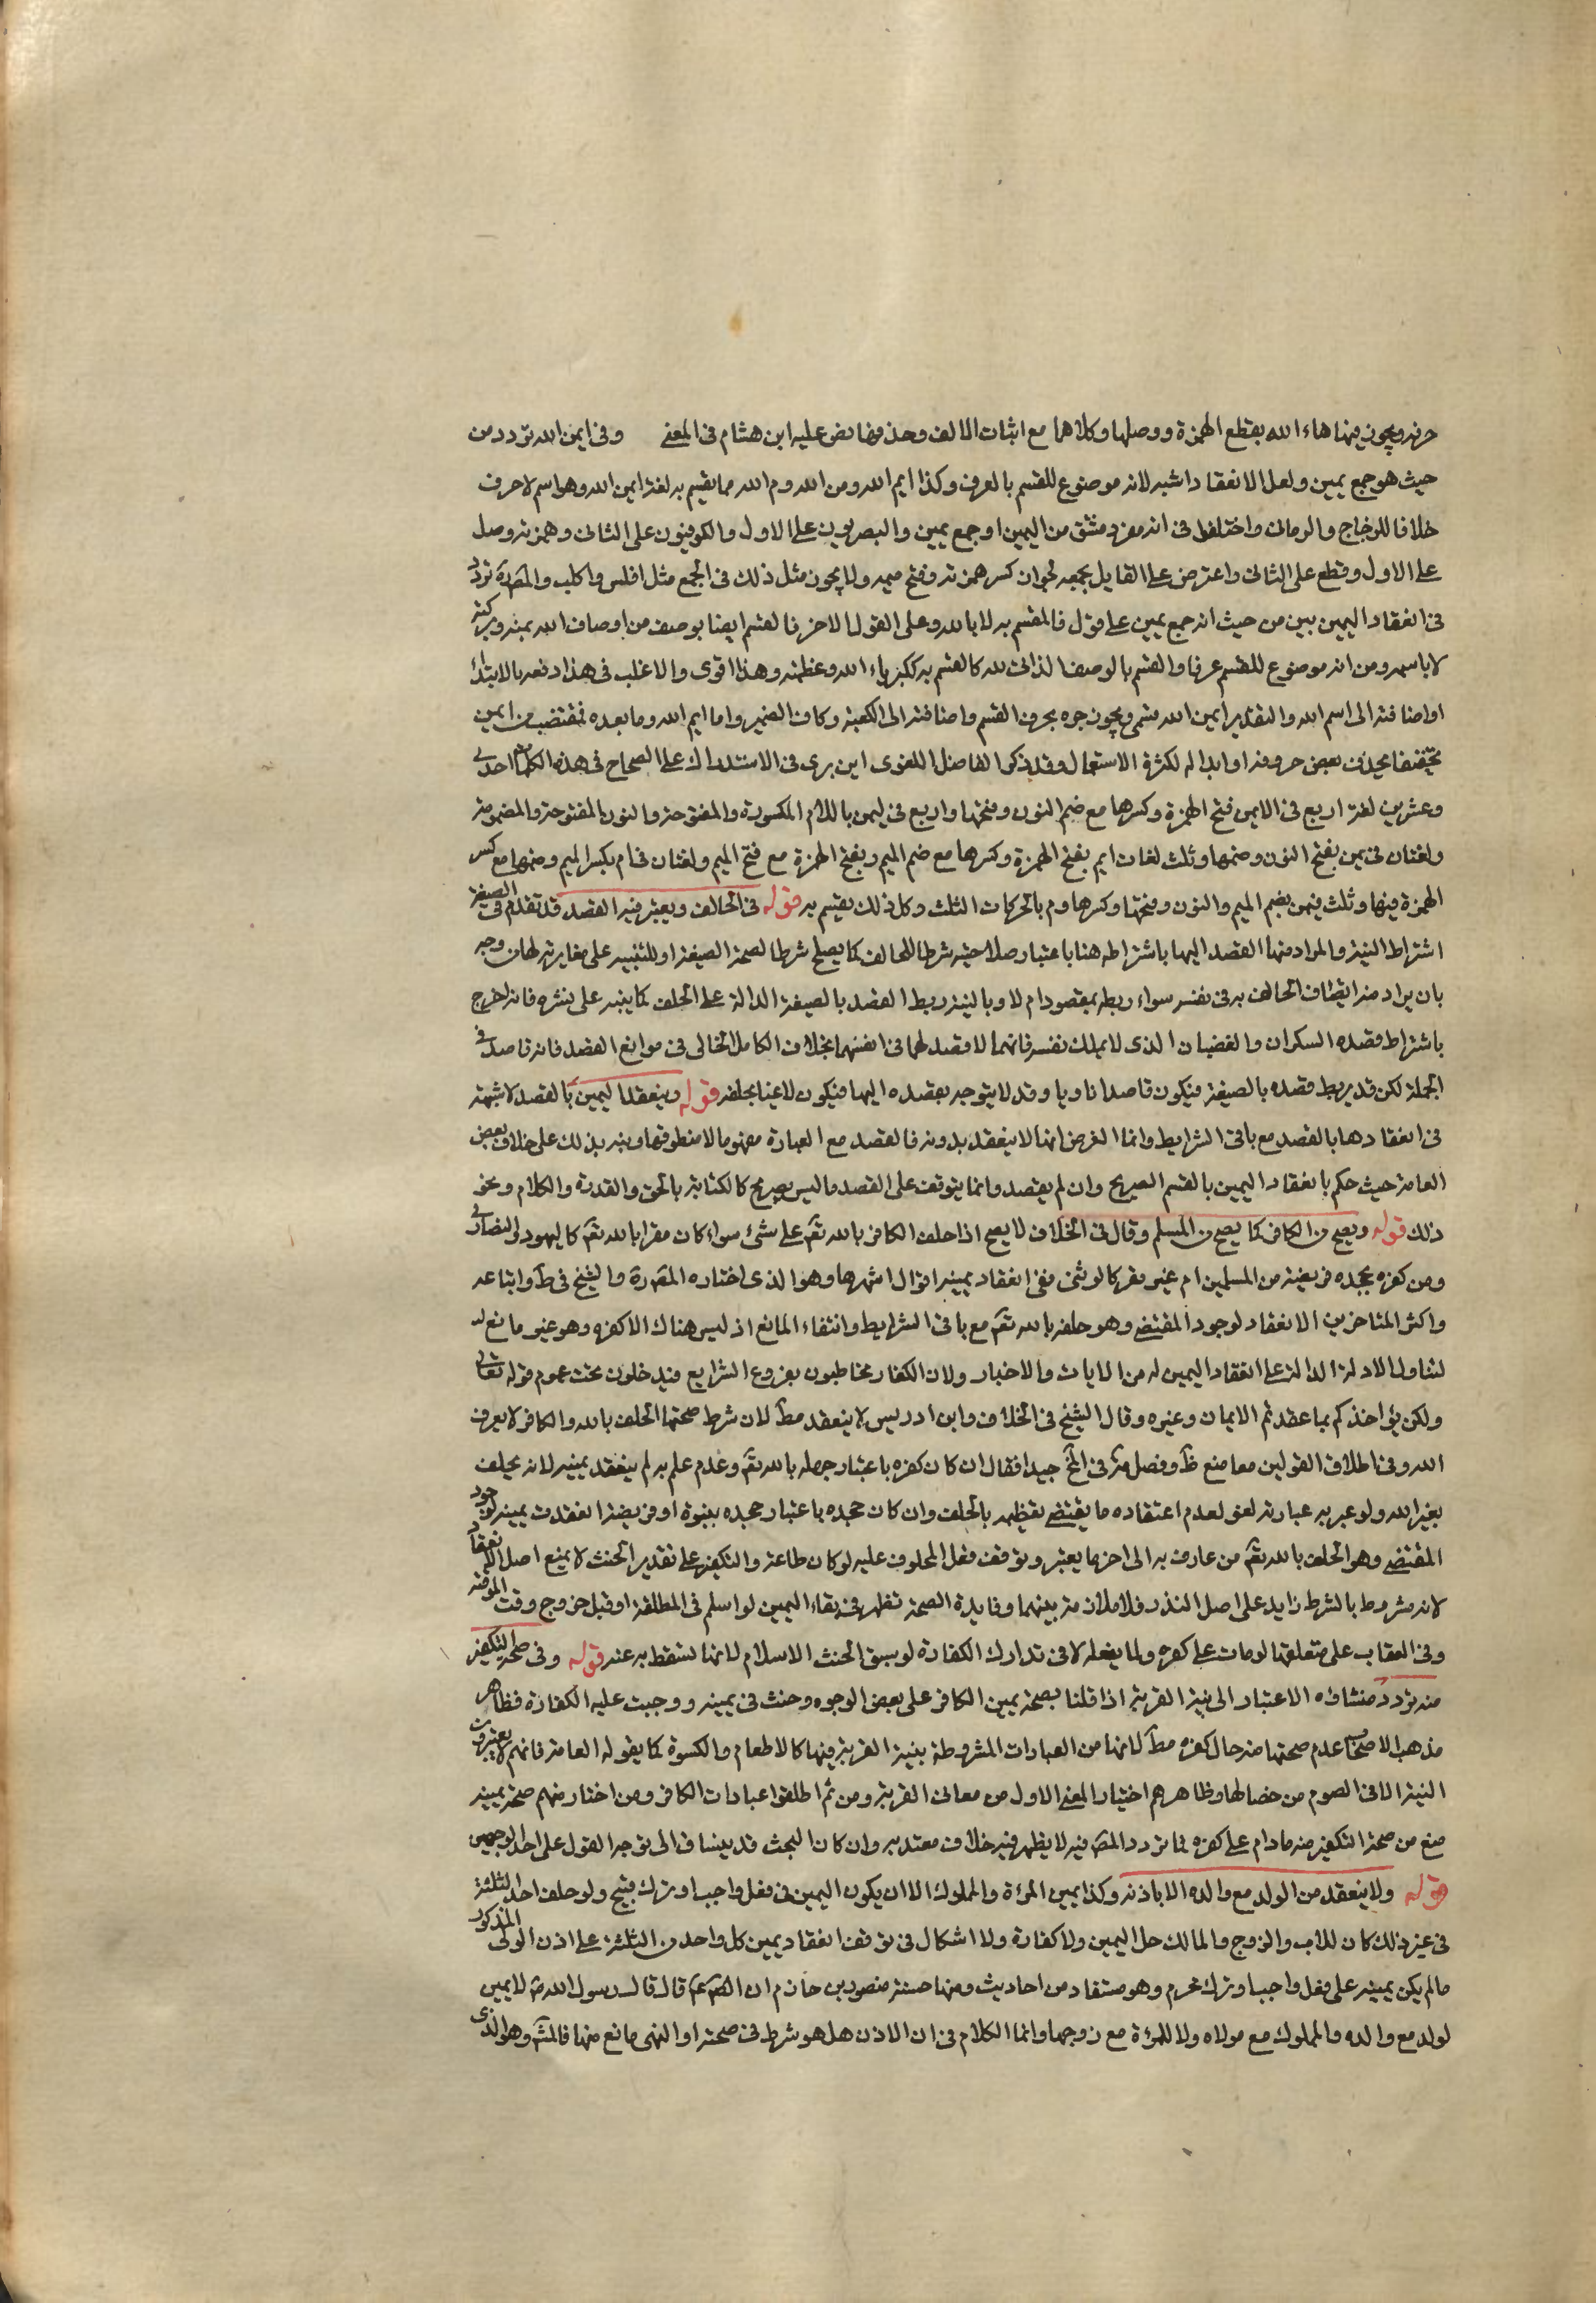 حرفه ويجوز فيها هاء الله بقطع الهمزة ووصلها وكلاهما مع اثبات الالف وحذفها نص عليه ابن هشام في المغني وفي ايمن الله تردد من
حيث هو جمع يمين ولعل الانعقاد اشبه لانه موضوع للقسم بالعرف وكذا ايم الله ومن الله وم الله مما يقسم به لغة ايمن الله وهو اسم لا حرف
خلافا للزجاج والرماني واختلفوا في انه مفرد مشتق من اليمين او جمع يمين والبصريون على الاول والكوفيون على الثاني وهمزته وصل
على الاول وقطع على الثاني واعترض على القايل بجمعه لجواز كسر همزته وفتح ميمه ولا يجوز مثل ذلك في الجمع مثل افلس واكلب والمصرة تردد
في انعقاد اليمين بين من حيث انه جمع يمين على قول فالمقسم به لا بالله وعلى القول الاخر فالقسم ايضا بوصف من اوصاف الله يمنه وبركته
لا باسمه ومن انه موضوع للقسم عرفا والقسم بالوصف الذاتي لله كالقسم به ككبرياء الله وعظمته وهذا اقوى والاغلب في هذا رفعه بالابتداء
او اضافته الى اسم الله والتقدير ايمن الله قسمي ويجوز جره بحرف القسم واضافته الى الكعبة وكاف الضمير واما ايم الله وما بعده فمقتضب من ايمن
تخفيفا بحذف بعض حروفه او ابداله لكثرة الاستعمال وقد ذكر الفاضل اللغوي ابن بري في الاستدراك على الصحاح في هذه الكلمة احدى
وعشرين لغة اربع في الايمن فتح الهمزة وكسرها مع ضم النون وفتحها واربع في ليمن باللام المكسورة والمفتوحة والنون المفتوحة والمضمومة
ولغتان في يمن بفتح النون وضمها وثلث لغات ايم بفتح الهمزة وكسرها مع ضم الميم وبفتح الهمزة مع فتح الميم ولغتان في ام بكسر الميم وضمها مع كسر
الهمزة فيها وثلث في من بضم الميم والنون وفتحها وكسرها وم بالحركات الثلث وكل ذلك يقسم به قوله في الحالف ويعتبر فيه القصد قد تقدم في الصيغة
اشتراط النية والمراد منها القصد اليها باشتراطه هنا باعتبار صلاحيته شرطا للحالف كما يصلح شرطا لصحة الصيغة او للتنبيه على مغايرته لها من وجه
بان يراد منه ايقاف الحالف به في نفسه سواء ربطه بمقصود ام لا وبالنية ربط القصد بالصيغة الدالة على الحلف كما ينبه على نشره فانه اخرج
باشتراط قصده السكران والغضبان الذي لا يملك نفسه فانهما لا قصد لهما في انفسهما بخلاف الكامل الخالي في موانع القصد فانه قاصد في
الجملة لكن قد يربط قصده بالصيغة فيكون قاصدا ناويا وقد لا يتوجه بقصده اليها فيكون لاغيا بحلفه قوله وينعقد اليمين بالقصد لا شبهة
في انعقادها بالقصد مع باقي الشرايط وانما الغرض انها لا ينعقد بدونه فالقصد مع العبارة مفهوما لا منطوقها ونبه بذلك على خلاف بعض
العامة حيث حكم بانعقاد اليمين بالقسم الصريح وان لم يقصد وانما يتوقف على القصد ما ليس بصريح كالكناية بالحق والقدرة والكلام ونحو
ذلك قوله ويصح من الكافر كما يصح من المسلم وقال في الخلاف لا يصح اذا حلف الكافر بالله تعم على شئ سواء كان مقرا بالله تعم كاليهود والنصارى
ومن كفره بجحده فريضة من المسلمين ام غير مقر كالوثني ففي انعقاد يمينه اقوال اشهرها وهو الذي اختاره المصرة والشيخ في ط واتباعه
واكثر المتاخرين الانعقاد لوجود المقتضي وهو حلفه بالله تعم مع باقي الشرايط وانتفاء المانع اذ ليس هناك الا كفره وهو غير مانع له
لتناول الادلة الدالة على انعقاد اليمين له من الايات والاخبار ولان الكفار مخاطبون بفروع الشرايع فيدخلون تحت عموم قوله تعالى
ولكن يؤاخذكم بما عقدتم الايمان وغيره وقال الشيخ في الخلاف وابن ادريس لا ينعقد مط لان شرط صحتها الحلف بالله والكافر لا يعرف
الله وفي اطلاق القولين معا منع ظ وفصل في المخ جيدا فقال ان كان كفره باعتبار جهله بالله تعم وعدم علمه به لم ينعقد يمينه لانه يحلف
بغير الله ولو عبر به عبارته لغو لعدم اعتقاده ما يقتضي تعظيمه بالحلف وان كان جحده باعتبار جحده بنبوة او فريضة انعقدت يمينه لوجود
المقتضي وهو الحلف بالله تعم من عارف به الى اخر ما يعتبر وتوقف فعل المحلوف عليه لو كان طاعة والتكفير على تقدير الحنث لا يمنع اصل الانعقاد
لانه مشروط بالشرط زايد على اصل النذر فلا ملازمة بينهما وفايدة الصحة تظهر في بقاء اليمين لو اسلم في المطلقة او قبل خروج وقت الموقتة
وفي العقاب على متعلقها لو مات على كفره ولما يفعله لا في تدارك الكفارة لو سبق الحنث الاسلام لانها تسقط به عنه قوله وفي صحة التكفير
منه تردد منشاؤه الاعتبار الى نية القربة اذا قلنا بصحة يمين الكافر على بعض الوجوه وحنث في يمينه ووجبت عليه الكفارة فظاهر
مذهب الاصحاب عدم صحتها منه حال كفره مط لانها من العبادات المشروطة بنية القربة فيها كالاطعام والكسوة كما يقوله العامة فانهم لا يعتبرون
النية الا في الصوم من خصالها وظاهرهم اختيار المعنى الاول من معاني القربة ومن ثم اطلقوا عبادات الكافر ومن اختار منهم صحة يمينه
منع من صحة التكفير منه مادام على كفره فما تردد المصر فيه لا يظهر فيه خلاف معتد به وان كان البحث قد ينساق الى توجه القول على احد الوجهين
قوله ولا ينعقد من الولد مع والده الا باذنه وكذا يمين المرءة والمملوك الا ان يكون اليمين في فعل واجب او ترك قبيح ولو حلف احد الثلثة
في غير ذلك كان للاب والزوج والمالك حل اليمين ولا كفارة ولا اشكال في توقف انعقاد يمين كل واحد من الثلثة على اذن الولي المذكور
ما لم يكن يمينه على فعل واجب او ترك محرم وهو مستفاد من احاديث ومنها حسنة منصور بن حازم ان الصم عم قال قال رسول الله ص لا يمين
لولد مع والده والمملوك مع مولاه ولا للمرءة مع زوجها وانما الكلام في ان الاذن هل هو شرط في صحته او النهي مانع منها فالمش وهو الذي